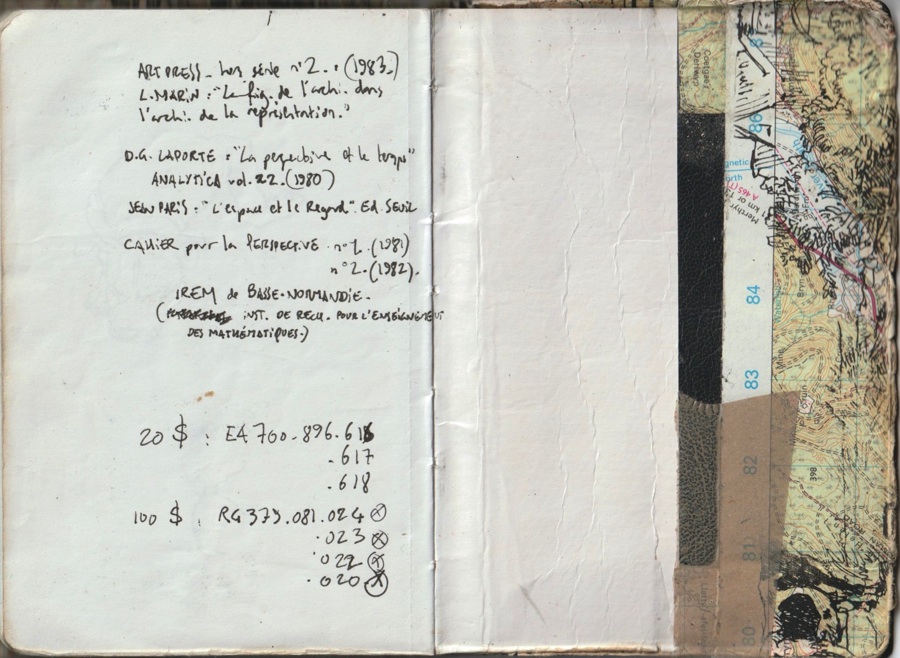 ART PRESS - hors série n°2. : (1983.)
L. MARIN : "La fig. de l'archi. dans
l'archi. de la représentation."
D.G. LAPORTE : "La perspective et le temps"
ANALYTICA vol. 22. (1980)
JEAN PARIS : "L'espace et le Regard". Ed. SEUIL
CAHIER pour la PERSPECTIVE . n°1. (1981)
n°2. (1982).
IREM de BASSE-NORMANDIE.
( INST. DE RECH. POUR L'ENSEIGNEMENT
DES MATHÉMATIQUES.)
20 $ : E4700.896.616
.617
.618
100 $ . RG 379.081.024
.023
.022
.020
Coetgae
86
gnetic
orth
A 465(T)
Merthyr
84
83
82
398
81
80